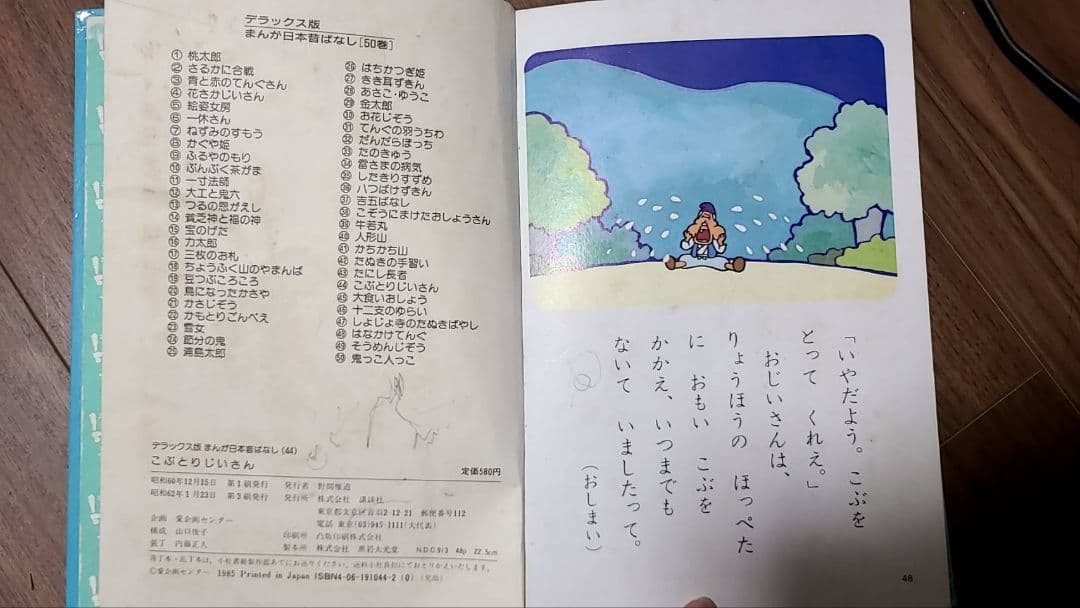 デラックス版
まんが日本昔ばなし[50巻]
①桃太郎
②さるかに合戦
③青と赤のてんぐさん
④花さかじいさん
⑤絵姿女房
⑥一休さん
⑦ねずみのすもう
⑧かぐや姫
⑨ふるやのもり
⑩ぶんぶく茶がま
⑪一寸法師
⑫大工と鬼六
⑬つるの恩がえし
⑭貧乏神と福の神
⑮宝のげた
⑯力太郎
⑰三枚のお札
⑱ちょうふく山のやまんば
⑲豆つぶころころ
⑳鳥になったかさや
㉑かさじぞう
㉒かもとりごんべえ
㉓雪女
㉔節分の鬼
㉕浦島太郎
㉖はちかつぎ姫
㉗きき耳ずきん
㉘あさこ・ゆうこ
㉙金太郎
㉚お花じぞう
㉛てんぐの羽うちわ
㉜だんだらぼっち
㉝たのきゅう
㉞雷さまの病気
㉟したきりすずめ
㊱八つばけずきん
㊲吉五ばなし
㊳こぞうにまけたおしょうさん
㊴牛若丸
㊵人形山
㊶かちかち山
㊷たぬきの手習い
㊸たにし長者
㊹こぶとりじいさん
㊺大食いおしょう
㊻十二支のゆらい
㊼しょじょ寺のたぬきばやし
㊽はなかけてんぐ
㊾そうめんじぞう
㊿鬼っこ人っこ
デラックス版 まんが日本昔ばなし(44)
こぶとりじいさん
定価580円
昭和60年12月15日 第1刷発行 発行者 野間惟道
昭和62年1月23日 第3刷発行 発行所 株式会社 講談社
東京都文京区音羽2-12-21 郵便番号112
電話 東京(03)945-1111(大代表)
企画 愛企画センター
構成 山口悦子 印刷所 凸版印刷株式会社
装丁 内藤正人 製本所 株式会社 黒岩大光堂 N.D.C.913 48p 22.5cm
落丁本・乱丁本は、小社書籍製作部あてにお送りください。送料小社負担にておとりかえいたします。
©愛企画センター 1985 Printed in Japan ISBN4-06-191044-2 (0)
「いやだよう。こぶを
とって くれえ。」
おじいさんは、
りょうほうの ほっぺた
に おもい こぶを
かかえ、いつまでも
ないて いましたって。
(おしまい)
48